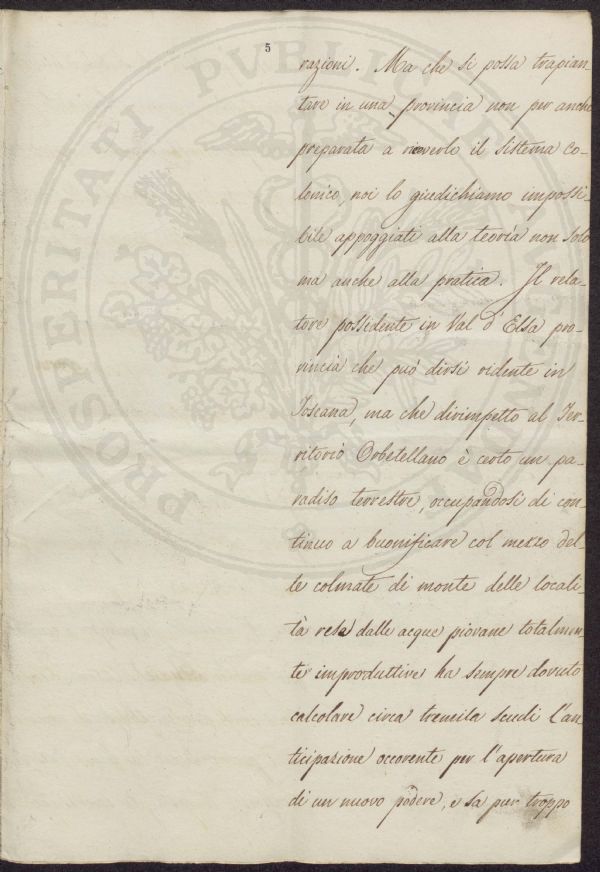 5
razioni. Ma che si possa trapian-
tare in una provincia non per anche
preparata a riceverlo il sistema co-
lonico, noi lo giudichiamo impossi-
bile appoggiati alla teoria non solo
ma anche alla pratica. Il rela-
tore possidente in Val d'Elsa pro-
vincia che può dirsi ridente in
Toscana, ma che dirimpetto al Ter-
ritorio Orbetellano è certo un pa-
radiso terrestre, occupandosi di con-
tinuo a buonificare col mezzo del-
le colmate di monte delle locali-
tà rese dalle acque piovane totalmen-
te improduttive ha sempre dovuto
calcolare circa tremila scudi l'an-
ticipazione occorente per l'apertura
di un nuovo podere, e sa pur troppo
PROSPERITATI PUBLICAE